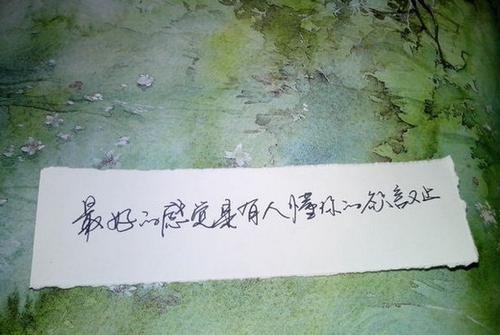 最好的感觉是有人懂你的欲言又止